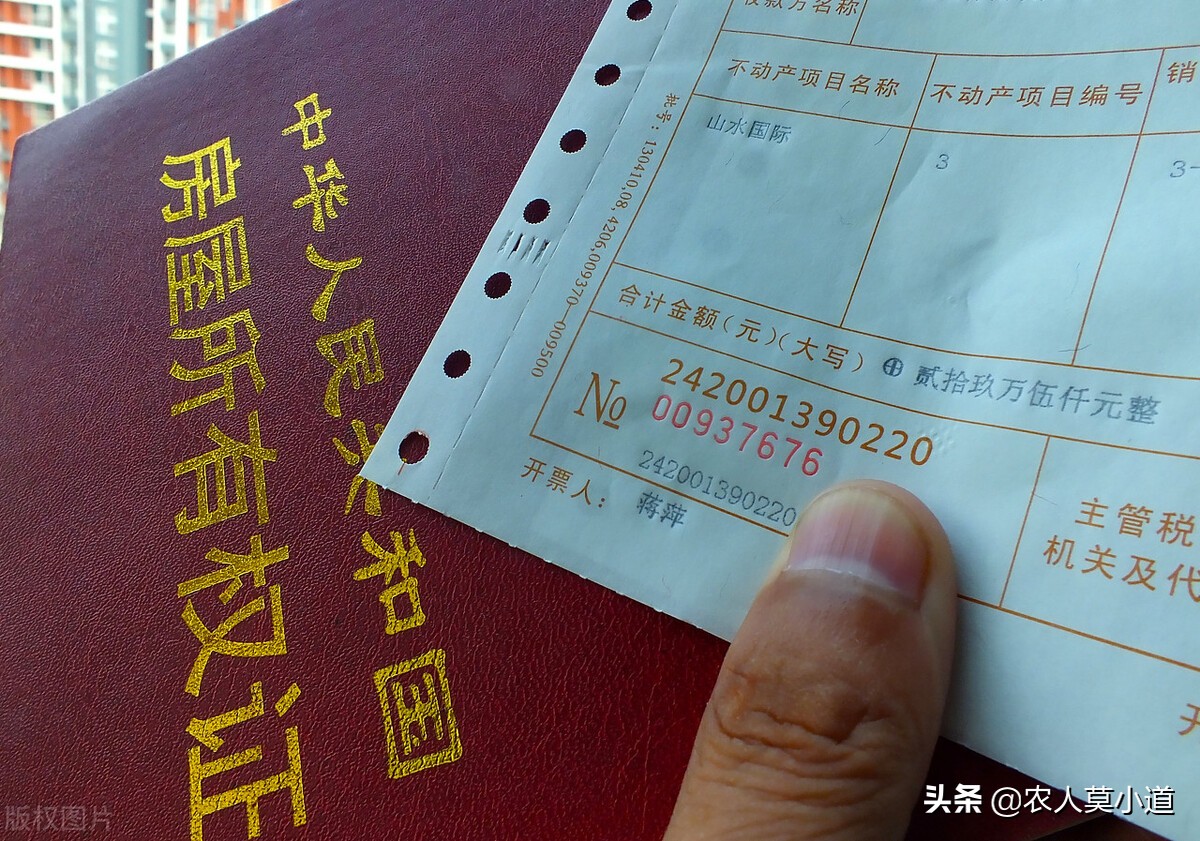 中华人民共和国
房屋所有权证
收款方名称
不动产项目名称
不动产项目编号
销
山水国际
3
3-
批号：130410.08.4206.009370—009500
合计金额（元）（大写）
⊕ 贰拾玖万伍仟元整
242001390220
№ 00937676
242001390220
开票人：
蒋萍
主管税
机关及代
开
版权图片
头条 @农人莫小道